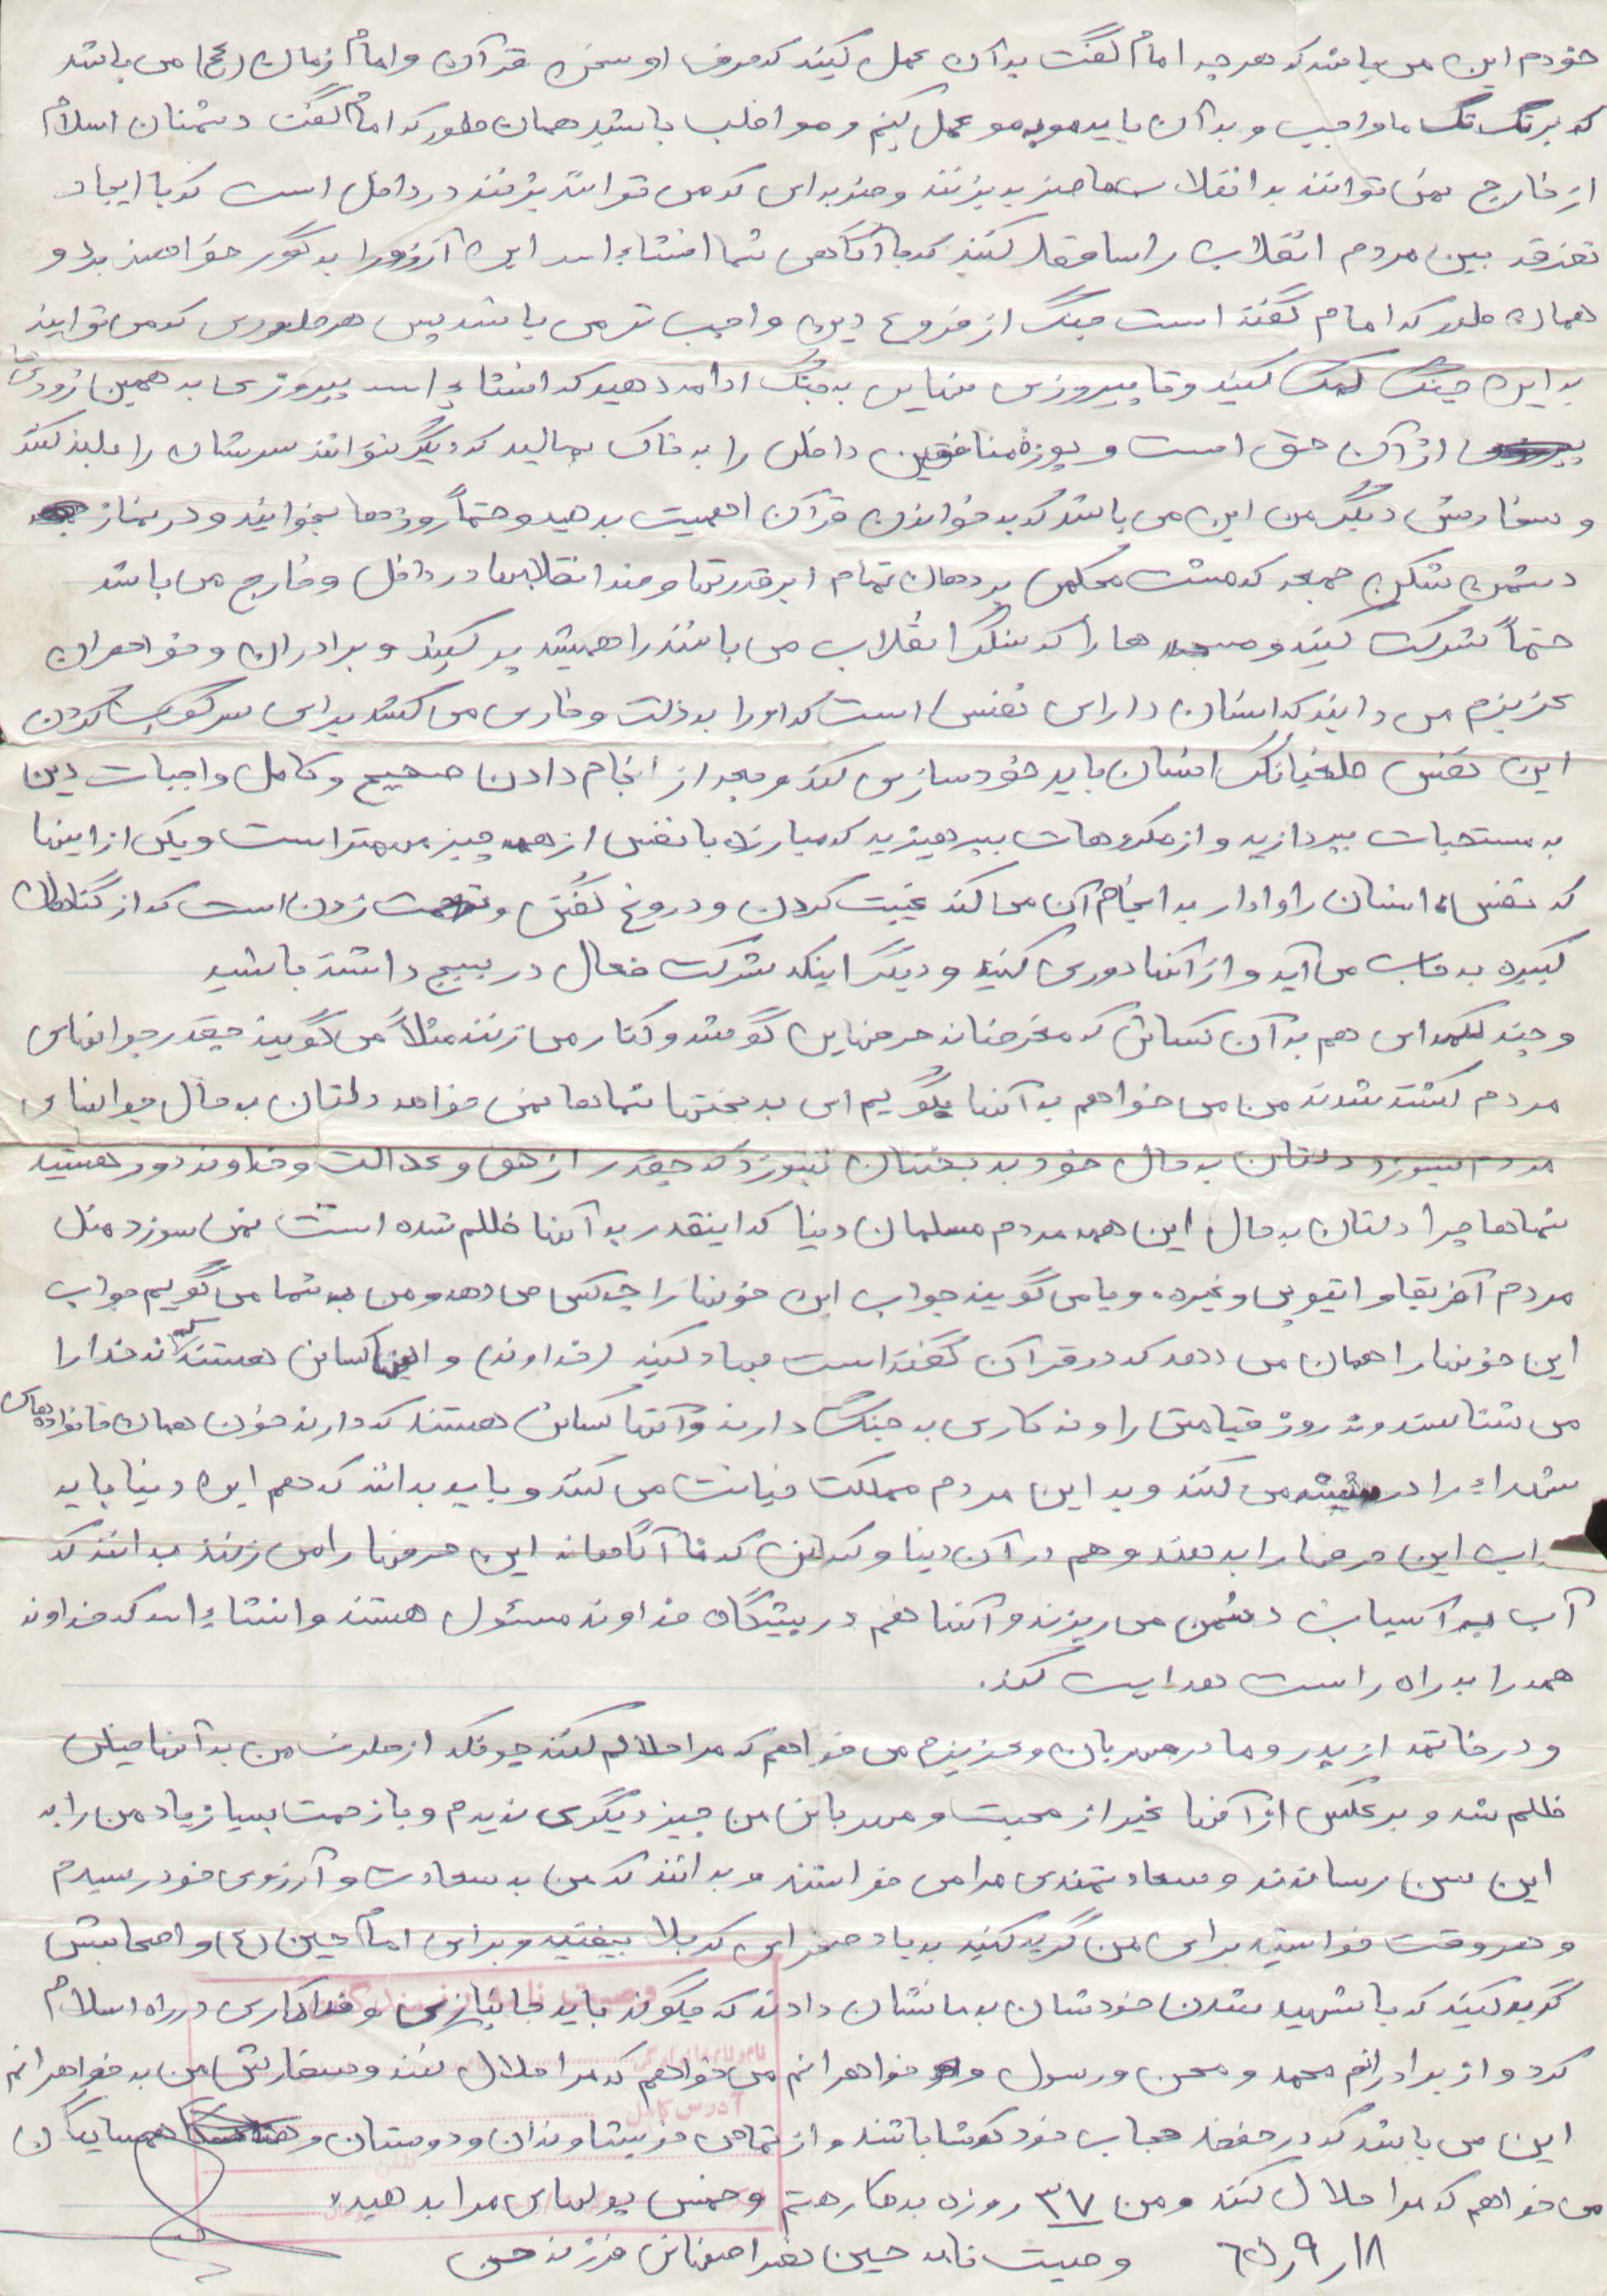 خودم این می باشد که هر چه امام گفت به آن عمل کنید که حرف او سخن قرآن و امام زمان (عج) می باشد
که بر تک تک ما واجب و به آن باید مو به مو عمل کنیم و مواظب باشید همان طور که امام گفت دشمنان اسلام
از خارج نمی توانند به انقلاب ما ضربه بزنند و ضربه ای که می توانند بزنند در داخل است که با ایجاد
تفرقه بین مردم انقلاب را ساقط کنند که با آگاهی شما انشاءاله این آرزو را به گور خواهند برد و
همان طور که امام گفته است جنگ از فروع دین واجب تر می باشد پس هر طوری که می توانید
به این جنگ کمک کنید و تا پیروزی نهایی به جنگ ادامه دهید که انشاءاله پیروزی به همین زودی ها
از آن حق است و پوزه منافقین داخلی را به خاک بمالید که دیگر نتوانند سرشان را بلند کنند
و سفارش دیگر من این می باشد که به خواندن قرآن اهمیت بدهید و حتماً روزها بخوانید و در نماز
دشمن شکن جمعه که مشت محکمی بر دهان تمام ابرقدرتها و ضد انقلابها در داخل و خارج می باشد
حتماً شرکت کنید و مسجد ها را که سنگر انقلاب می باشند را همیشه پر کنید و برادران و خواهران
عزیزم می دانید که انسان دارای نفسی است که او را به ذلت و خاری می کشد برای سرکوب کردن
این نفس طغیانگر انسان باید خودسازی کند و بعد از انجام دادن صحیح و کامل واجبات دین
به مستحبات بپردازید و از مکروهات بپرهیزید که مبارزه با نفس از همه چیز مهمتر است و یکی از اینها
که نفس انسان را وادار به انجام آن می کند غیبت کردن و دروغ گفتن و تهمت زدن است که از گناهان
کبیره به حساب می آید و از آنها دوری کنید و دیگر اینکه شرکت فعال در بسیج داشته باشید
و چند کلمه ای هم به آن کسانی که مغرضانه حرفهایی گوشه و کنار می زنند مثلاً می گویند چقدر جوانهای
مردم کشته شدند من می خواهم به آنها بگویم ای بدبختها شماها نمی خواهد دلتان به حال جوانهای
مردم بسوزد دلتان به حال خود بدبختتان بسوزد که چقدر از حق و عدالت و خداوند دور هستید
شماها چرا دلتان به حال این همه مردم مسلمان دنیا که اینقدر به آنها ظلم شده است نمی سوزد مثل
مردم آفریقا و اتیوپی و غیره. و یا می گویند جواب این خونها را چه کسی می دهد و من به شما می گویم جواب
این خونها را همان می دهد که در قرآن گفته است جهاد کنید (خداوند) و اینها کسانی هستند که نه خدا را
می شناسند و نه روز قیامتی را و نه کاری به جنگ دارند و آنها کسانی هستند که دارند خون همان خانواده های
شهداء را در شیشه می کنند و به این مردم مملکت خیانت می کنند و باید بدانند که هم این دنیا باید
اب این حرفها را بدهند و هم در آن دنیا و کسانی که ناآگاهانه این حرفها را می زنند بدانند که
آب به آسیاب دشمن می ریزند و آنها هم در پیشگاه خداوند مسئول هستند و انشاءاله که خداوند
همه را به راه راست هدایت کند.
و در خاتمه از پدر و مادر مهربان و عزیزم می خواهم که مرا حلالم کنند چونکه از طرف من به آنها خیلی
ظلم شد و برعکس از آنها غیر از محبت و مهربانی من چیز دیگری ندیدم و با زحمت بسیار زیاد من را به
این سن رساندند و سعادتمندی مرا می خواستند و بدانند که من به سعادت و آرزوی خود رسیدم
و هر وقت خواستید برای من گریه کنید به یاد صحرای کربلا بیفتید و برای امام حسین (ع) و اصحابش
گریه کنید که با شهید شدن خودشان به ما نشان دادند که چگونه باید جانبازی و فداکاری در راه اسلام
کرد و از برادرانم محمد و محسن و رسول و خواهرانم می خواهم که مرا حلال کنند و سفارش من به خواهرانم
این می باشد که در حفظ حجاب خود کوشا باشند و از تمامی خویشاوندان و دوستان و همسایگان
می خواهم که مرا حلال کنند و من ۳۷ روزه بدهکار هستم و خمس پولهای مرا بدهید
۱۸ر۹ر۶۵ وصیت نامه حسین نصر اصفهانی فرزند حسن
وصیت نامه
نام و نام خانوادگی
آدرس کامل
تلفن